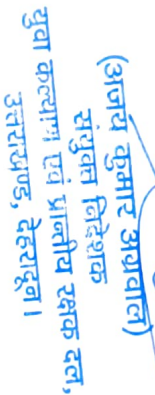 (अजय कुमार अग्रवाल)
संयुक्त निदेशक
युवा कल्याण एवं प्रान्तीय रक्षक दल,
उत्तराखण्ड, देहरादून।